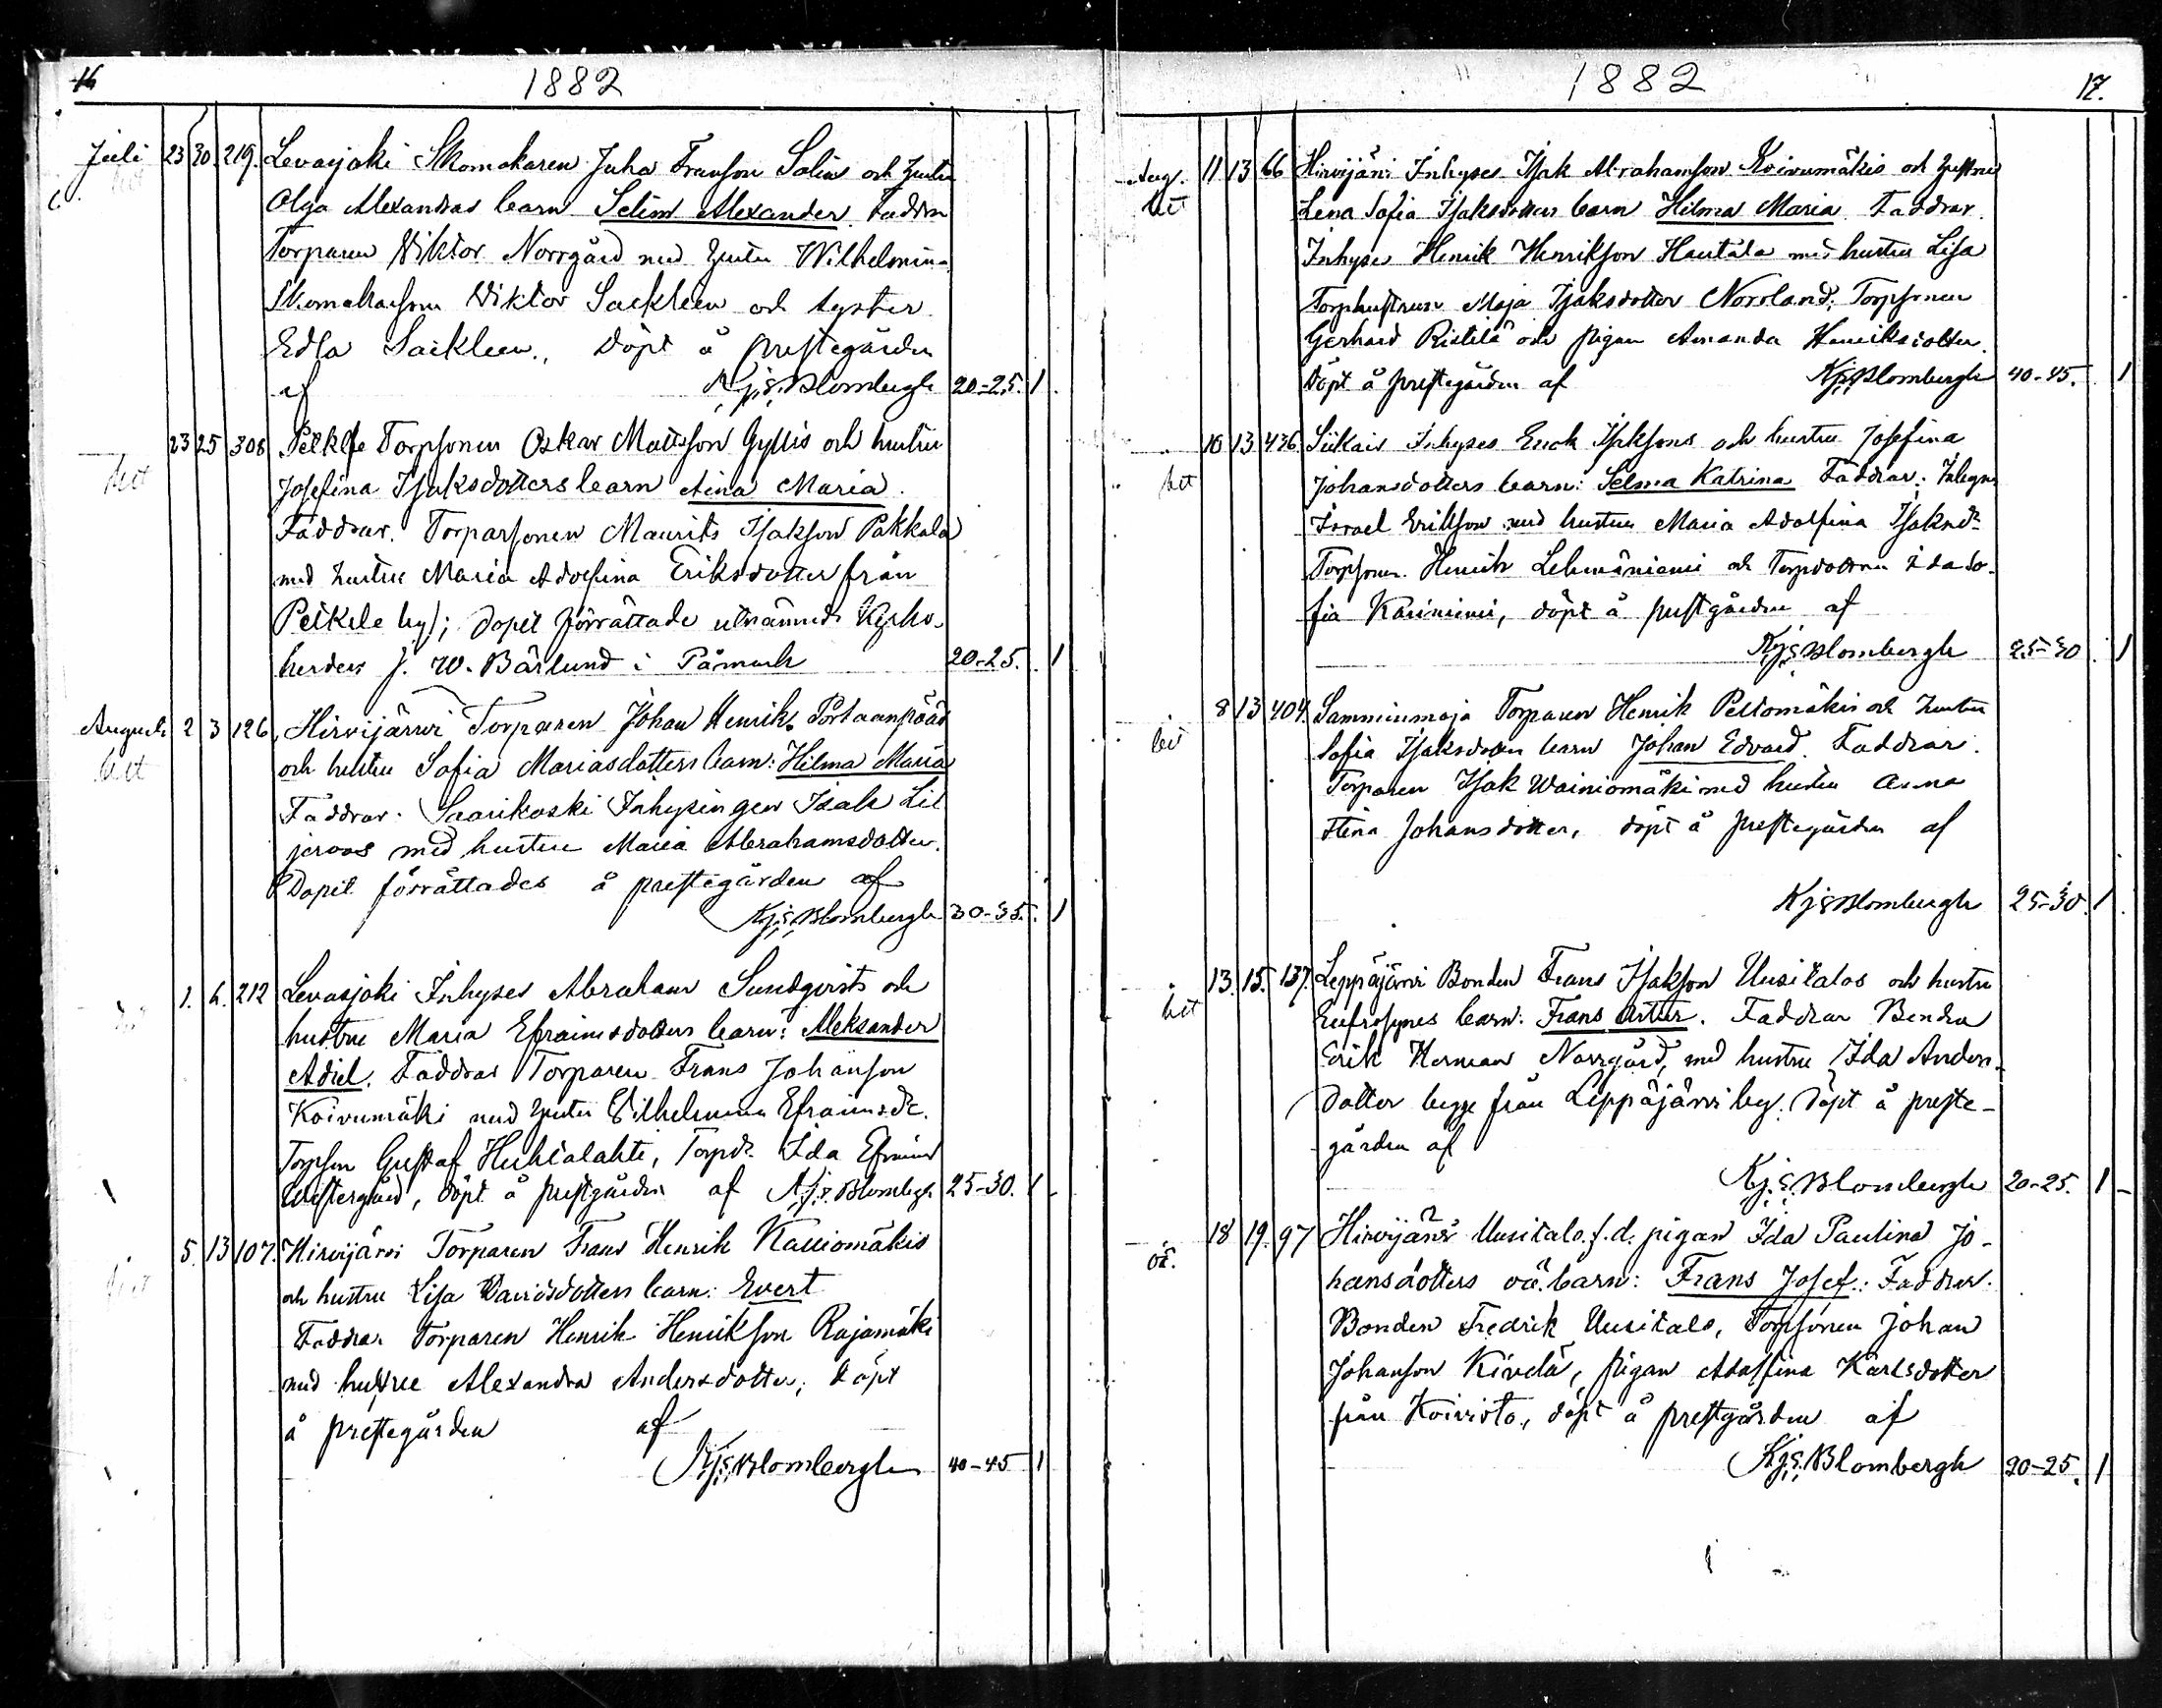 16
1882
Juli 23 30. 219. Levasjoki Skomakaren Juha Fransson Salins och hustru
Olga Alexandras barn Selim Alexander. Faddrar
Torparen Viktor Norrgård med hustru Wilhelmina
Skomakarson Viktor Sackleen och syster
Edla Sackleen., Döpt å prestegården
af Kj: S: Blombergh 20-25. 1
23 25 308 Peikle Torpsonen Oskar Mattsson Gyllis och hustru
het Josefina Isaksdotters barn Aina Maria.
Faddrar. Torparsonen Maurits Isaksson Pakkala
med hustru Maria Adolfina Eriksdotter från
Peikele by; dopet förrättade utnämnde Kyrko-
herden J. W. Bärlund i Påmark 20-25. 1
Augusti 2 3 126, Hirvijärvi Torparen Johan Henriks. Portaanpääs
het och hustru Sofia Mariasdotters barn: Hilma Maria
Faddrar. Saarikoski Inhysingen Isak Lil
jeroos med hustru Maria Abrahamsdotter.
Dopet förrättades å prestegården af
Kj: S: Blombergh 30-35. 1
1. 6. 212 Levasjoki Inhyses Abraham Sundqvists och
hustru Maria Efraimsdotters barn: Aleksander
Adiel. Faddrar Torparen Frans Johansson
Koivumäki med hustru Vilhelmina Efraimsdr.
Torpson Gustaf Huhtalahti, Torpdr. Ida Efraimd
Westergård, döpt å prestgården af Kj: S: Blombergh 25-30. 1
5. 13 107. Hirvijärvi Torparen Frans Henrik Kalliomäkis
och hustru Lisa Davidsdotters barn: Evert
Faddrar Torparen Henrik Henriksson Rajamäki
med hustru Alexandra Andersdotter, döpt
å prestegården af
Kj: S: Blombergh 40-45 1
1882
17.
Aug. 11 13 66 Hirvijärvi Inhyses Isak Abrahamsson Koivumäkis och hustru
het Lena Sofia Isaksdotters barn Hilma Maria. Faddrar.
Inhyses Henrik Henriksson Hautala med hustru Lisa
Torphustrun Maja Isaksdotter Norrland; Torpsonen
Gerhard Ristilä och pigan Amanda Henriksdotter.
Döpt å prestegården af Kj: S: Blombergh 40-45. 1
10 13 436. Siikais Inhyses Erick Isakssons och hustru Josefina
het Johansdotters barn: Selma Katrina Faddrar: Inhyses
Israel Eriksson med hustru Maria Adolfina Isaksdr.
Torpsonen Henrik Lehmäniemi och Torpdottren Ida So-
fia Kauniemi, döpt å prestgården af
Kj: S: Blombergh 25-30 1
8 13 404. Sammiumaja Torparen Henrik Peltomäkis och hustru
het Sofia Isaksdotters barn Johan Edvard. Faddrar.
Torparen Isak Wainiomäki med hustru Anna
Stina Johansdotter, döpt å prestegården af
Kj: S: Blombergh 25-30. 1
13. 15. 137. Leppäjärvi Bonden Frans Isaksson Uusitalos och hustru
het Eufrosynes barn: Frans Artur. Faddrar Bonden
Erik Herman Norrgård, med hustru Ida Anders-
dotter begge från Leppäjärvi by. Döpt å preste-
gården af
Kj: S: Blombergh 20-25. 1
18 19. 97 Hirvijärvi Uusitalo f.d. pigan Ida Paulina Jo-
oä. hansdotters oä. barn: Frans Josef. Faddrar.
Bonden Fredrik Uusitalo, Torpsonen Johan
Johansson Kivelä, pigan Adolfina Karlsdotter
från Koivisto, döpt å prestgården af
Kj: S: Blombergh 20-25. 1